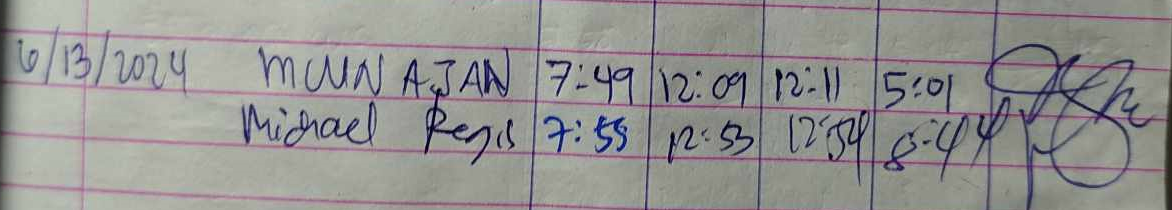 6/13/2024 MUN AJAN 7:49 12:09 12:11 5:01
Michael Regis 7:55 12:53 12:54 8:44